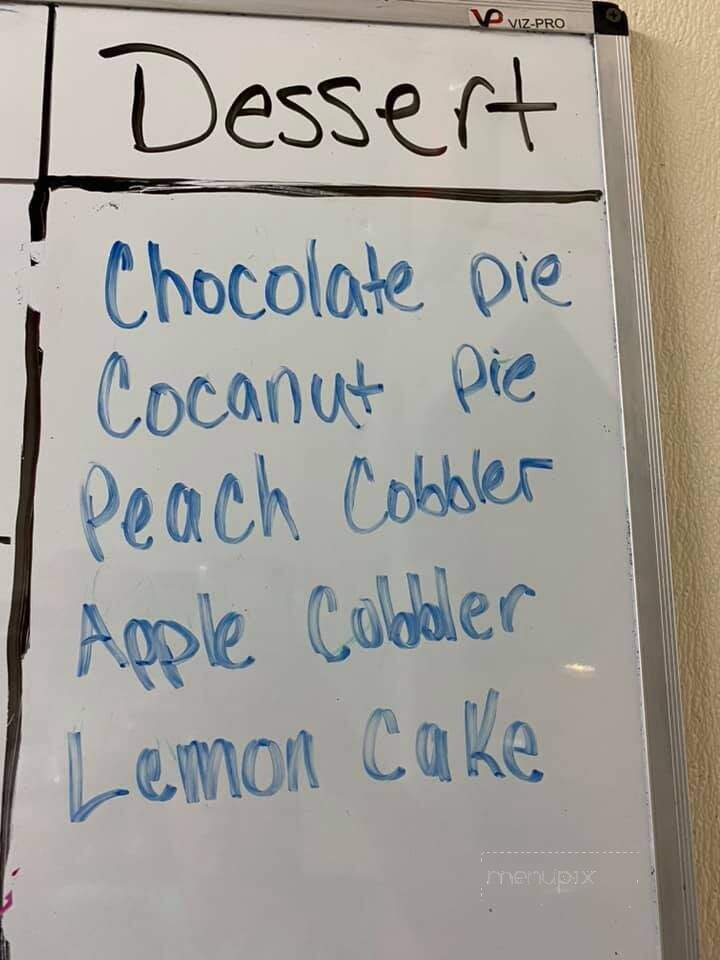 VP VIZ-PRO
Dessert
Chocolate pie
Cocanut Pie
Peach Cobbler
Apple Cobbler
Lemon Cake
menupix